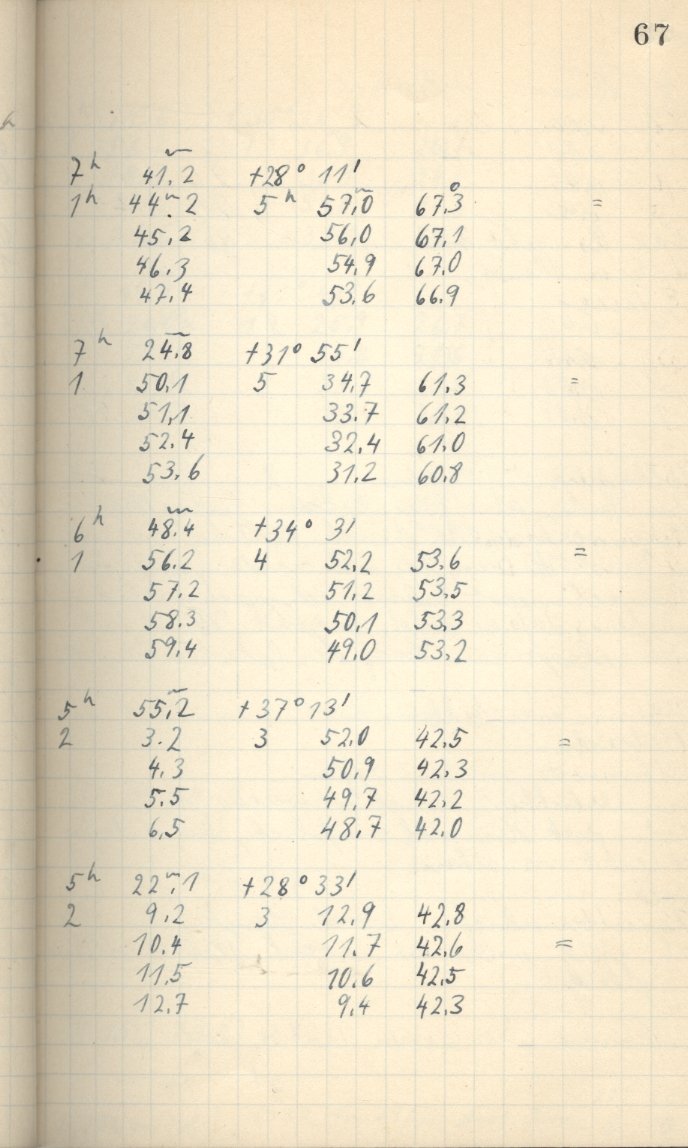 67
7ʰ 41ᵐ.2 +28° 11'
1ʰ 44ᵐ.2 5ʰ 57ᵐ.0 67°.3 =
45.2 56.0 67.1
46.3 54.9 67.0
47.4 53.6 66.9
7ʰ 24ᵐ.8 +31° 55'
1 50.1 5 34.7 61.3 =
51.1 33.7 61.2
52.4 32.4 61.0
53.6 31.2 60.8
6ʰ 48ᵐ.4 +34° 3'
1 56.2 4 52.2 53.6 =
57.2 51.2 53.5
58.3 50.1 53.3
59.4 49.0 53.2
5ʰ 55ᵐ.2 +37° 13'
2 3.2 3 52.0 42.5 =
4.3 50.9 42.3
5.5 49.7 42.2
6.5 48.7 42.0
5ʰ 22ᵐ.1 +28° 33'
2 9.2 3 12.9 42.8
10.4 11.7 42.6 =
11.5 10.6 42.5
12.7 9.4 42.3